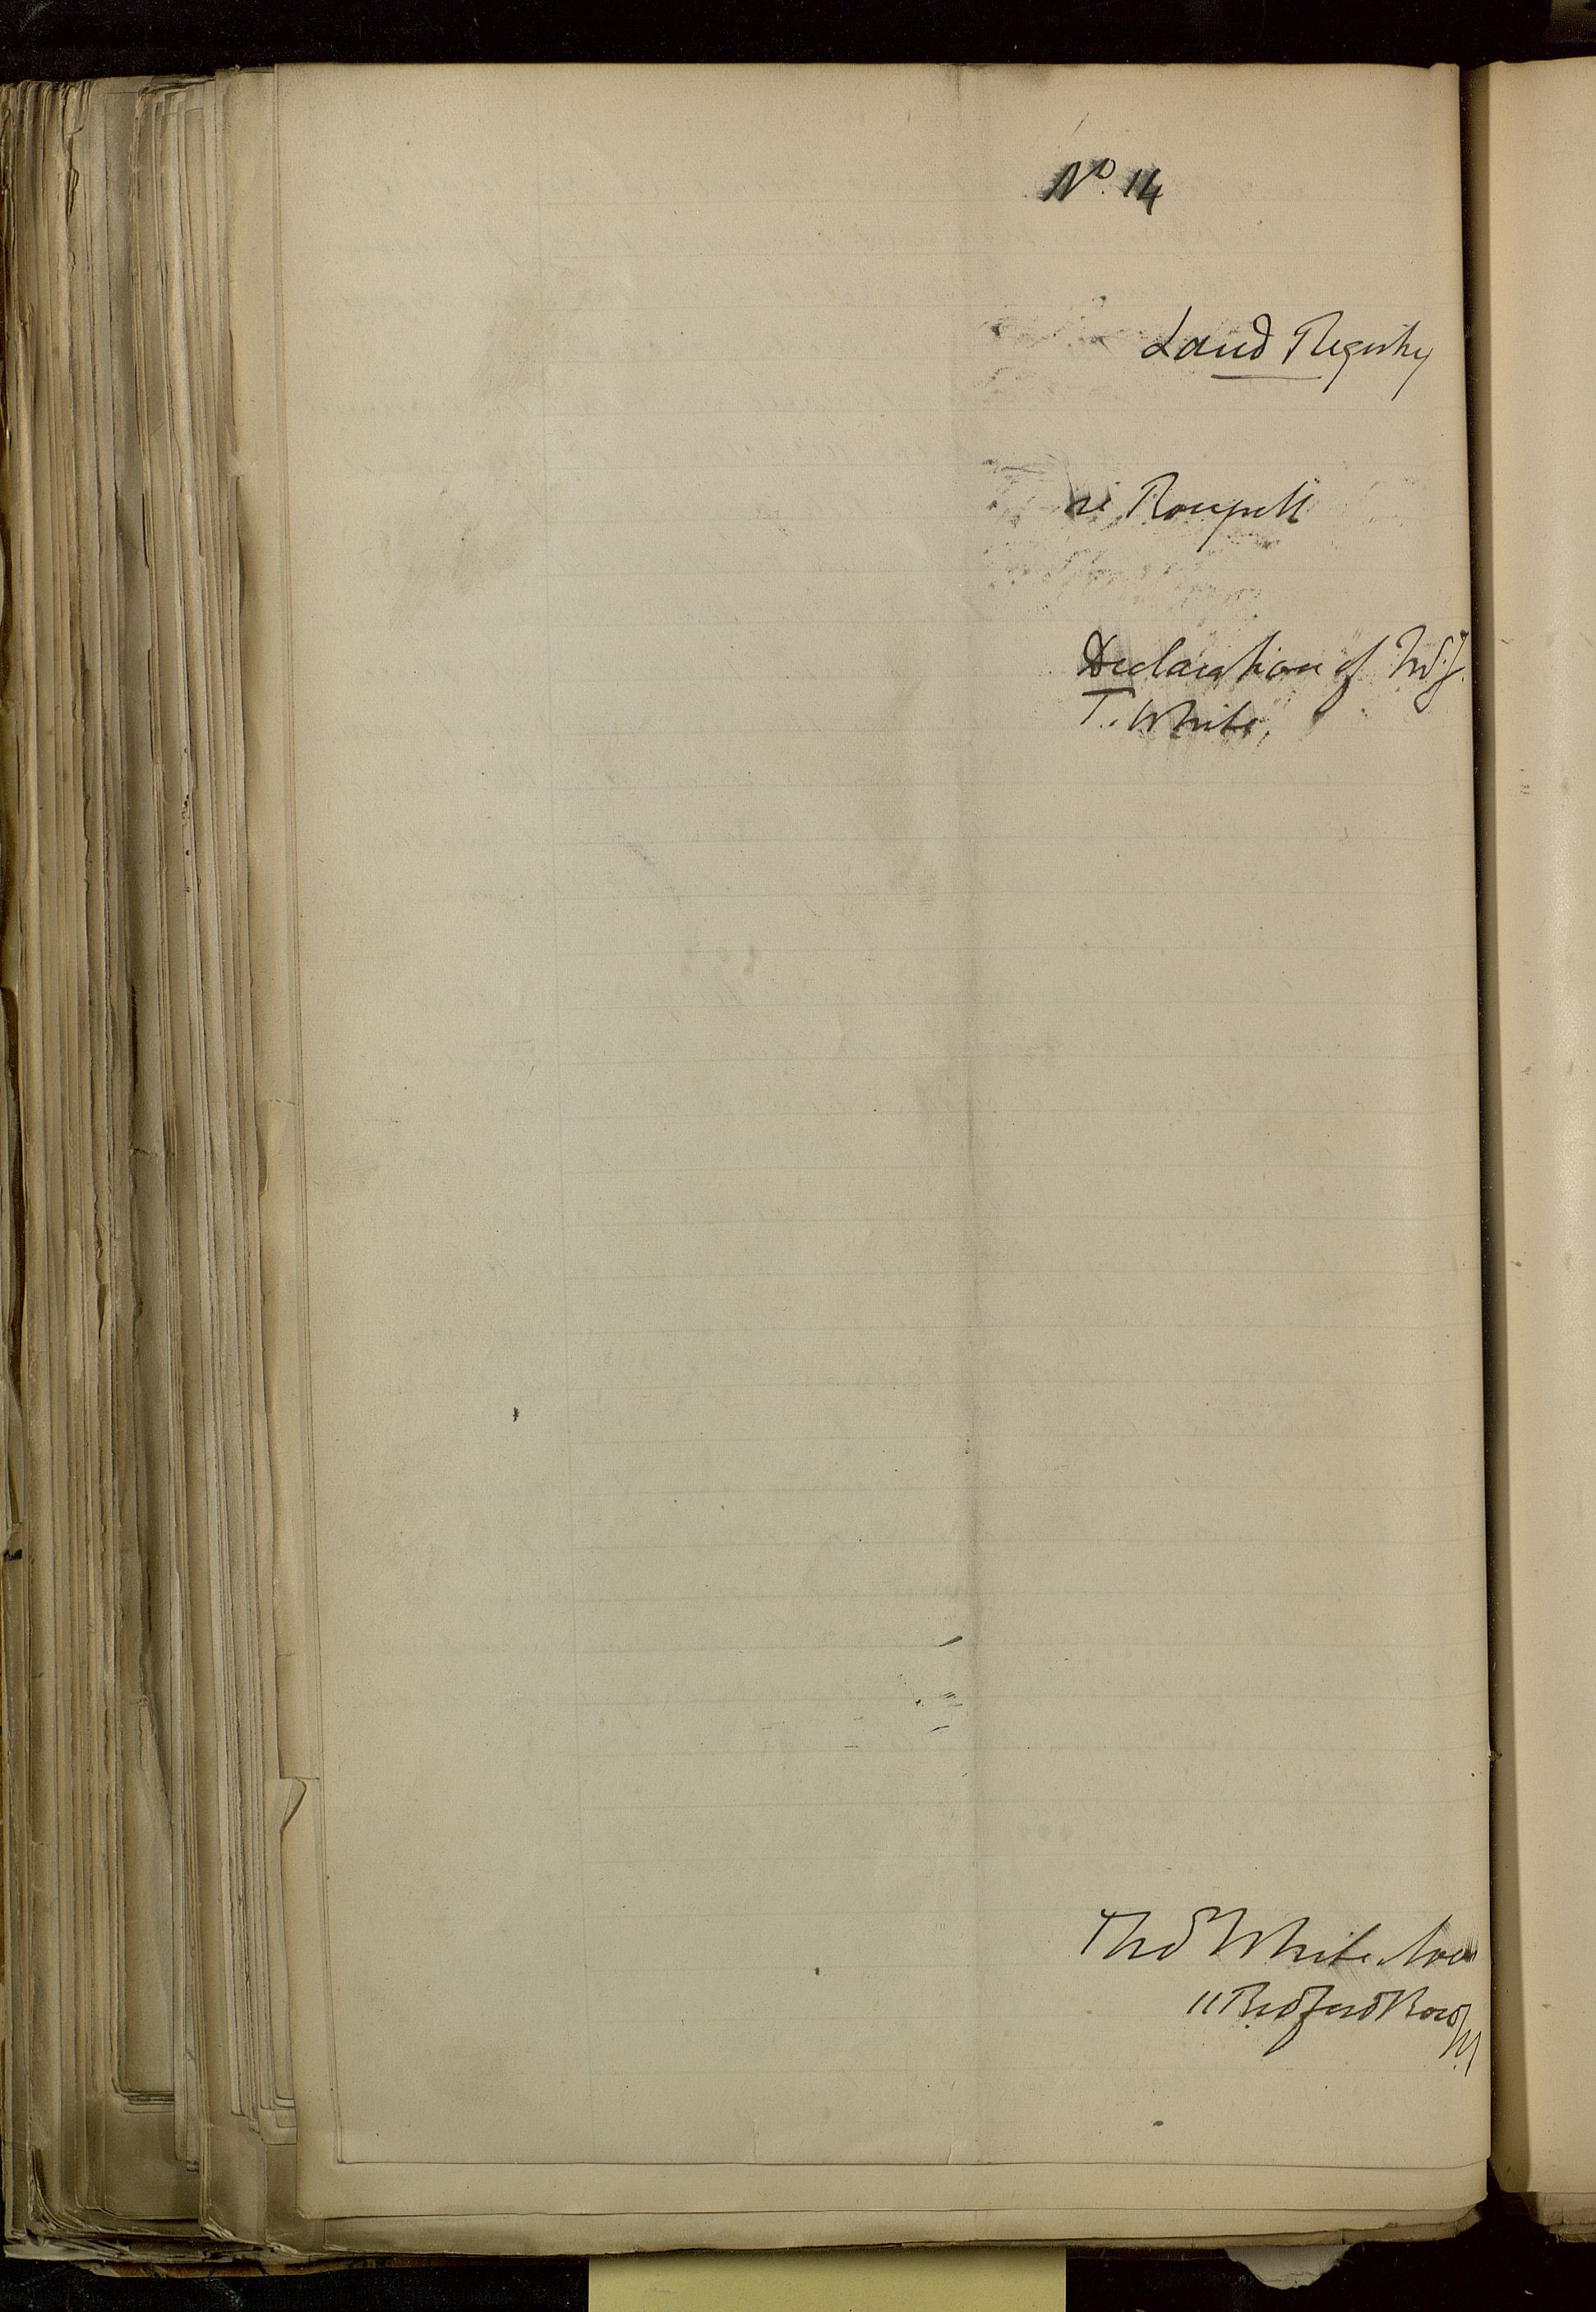 No. 14
Land Registry
re Roupell
Declaration of
T. White,
Thos White
11 Bedford Row